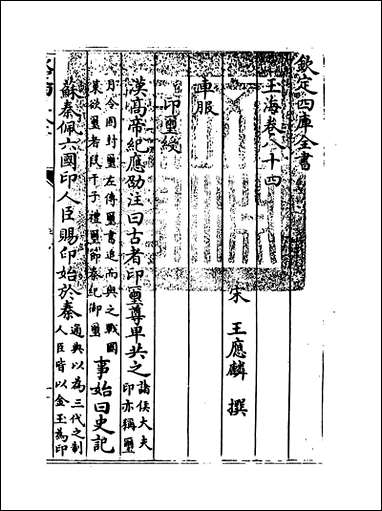 欽定四庫全書
玉海卷八十四
宋 王應麟 撰
車服
印璽綬
漢高帝紀應劭注曰古者印璽尊卑共之諸侯大夫印亦稱璽
月令固封璽左傳璽書追而與之戰國
策欲璽者段干子禮璽節秦紀御璽 事始曰史記
蘇秦佩六國印人臣賜印始於秦通典以為三代之制人臣皆以金玉為印